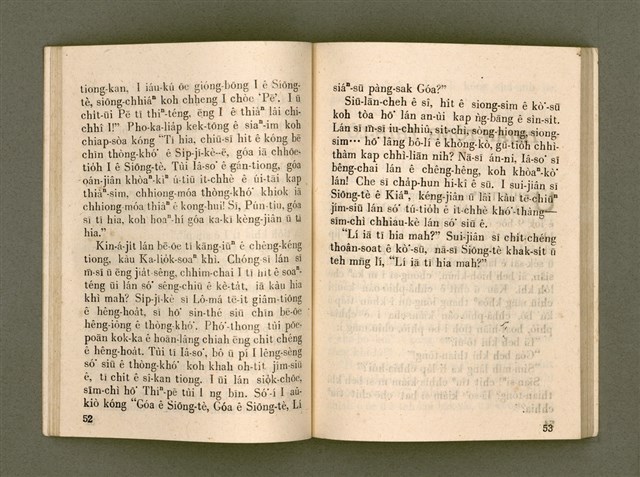 tiong-kan, I iáu-kú ōe gióng-bōng I ê Siōng-
tè, siōng-chhiâⁿ koh chheng I chòe 'Pē'. I ū
chit-ūi Pē tī thiⁿ-téng, ēng I ê thiàⁿ lâi chi-
chhî I!" Pho-ka-liáp kek-tōng ê siaⁿ-im koh
chiap-sòa kóng "Tī hia, chiū-sī hit ê kóng bē
chīn thòng-khó͘ ê Si̍p-jī-kè-ê, góa iā chhōe-
tio̍h I ê Siōng-tè. Tùi Iâ-so͘ ê gán-tiong, góa
oán-jiân khòaⁿ-kìⁿ ú-tiū it-chhè ê úi-tāi kap
thiàⁿ-sim, chhiong-móa thòng-khó͘ khiok iā
chhiong-móa thiàⁿ ê kong-hui! Sī, Pún-tiu, góa
sī tī hia, koh hoaⁿ-hí góa ka-kī kèng-jiân ū tī
hia."
Kin-á-ji̍t lán bē-ōe tī kāng-iūⁿ ê chèng-kéng
tiong, kàu Ka-lio̍k-soaⁿ khì. Chóng-sī lán sī
m̄-sī ū ēng jia̍t-sêng, chhim-chai I tī hit ê soaⁿ-
téng ūi lán só͘ sêng-chiū ê kè-ta̍t, iā kàu hia
khì mah? Si̍p-jī-kè sī Lô-má tē-it giâm-tiōng
ê hêng-hoa̍t, sī hō͘ sin-thé siū chīn bē-ōe
hêng-iông ê thòng-khó͘. Phó͘-thong tùi pōe-
poān kok-ka ê hoān-lâng chiah ēng chit chéng
ê hêng-hoa̍t. Tùi tī Iâ-so͘, bô ū pí I lêng-sèng
só͘ siū ê thòng-khó͘ koh khah oh-tit jím-siū
ê, tī chit ê sî-kan tiong. I ūi lán sio̍k-chōe,
sīm-chì hō͘ Thiⁿ-pē tùi I ng bīn. Só͘-í I aù-
kiò kóng "Góa ê Siōng-tè, Góa ê Siōng-tè, Lí
52
siáⁿ-sū pàng-sak Góa?"
Siū-lān-cheh ê sî, hit ê siong-sim ê kò͘-sū
koh tòa hō͘ lán an-ùi kap ǹg-bāng ê sìn-sit.
Lán sī m̄-sī iu-chhiû, sit-chì, sòng-hiong, siong-
sim··· hō͘ lâng bô-lí ê khòng-kò, gū-tio̍h chhi-
thàm kap chhì-liān nih? Nā-sī án-ni, Iâ-so͘ sī
bêng-chai lán ê chêng-hêng, koh khòaⁿ-kò͘
lán! Che sī cha̍p-hun hi-kî ê sū. I sui-jiân sī
Siōng-tè ê Kiáⁿ, kéng-jiân ū lâi kàu tē-chiūⁿ
jím-siū lán só͘ tú-tio̍h ê it-chhè khó͘-thàng
sīm-chì chhiau-kè lán só͘ siū ê.
"Lí iā tī hia mah?" Sui-jiân sī chit-chéng
thoân-soat ê kò͘-sū, nā-sī Siōng-tè khak-si̍t ū
teh mn̄g lí, "Lí iā tī hia mah?"
53